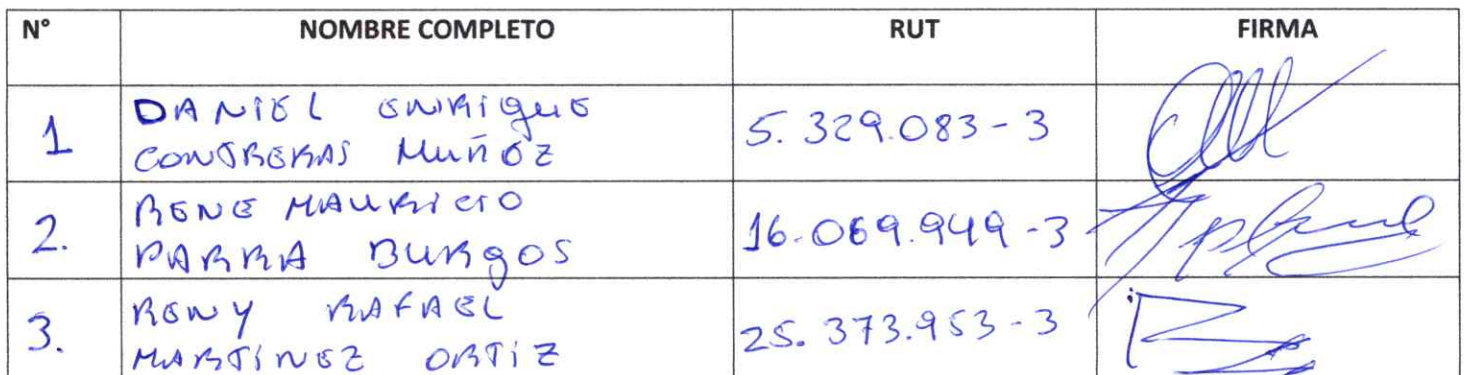 N° NOMBRE COMPLETO RUT FIRMA
1 DANIEL ENRIQUE
CONTRERAS MUÑOZ 5.329.083-3
2. RENE MAURICIO
PARRA BURGOS 16.069.949-3
3. RENY RAFAEL
MARTÍNEZ ORTIZ 25.373.953-3